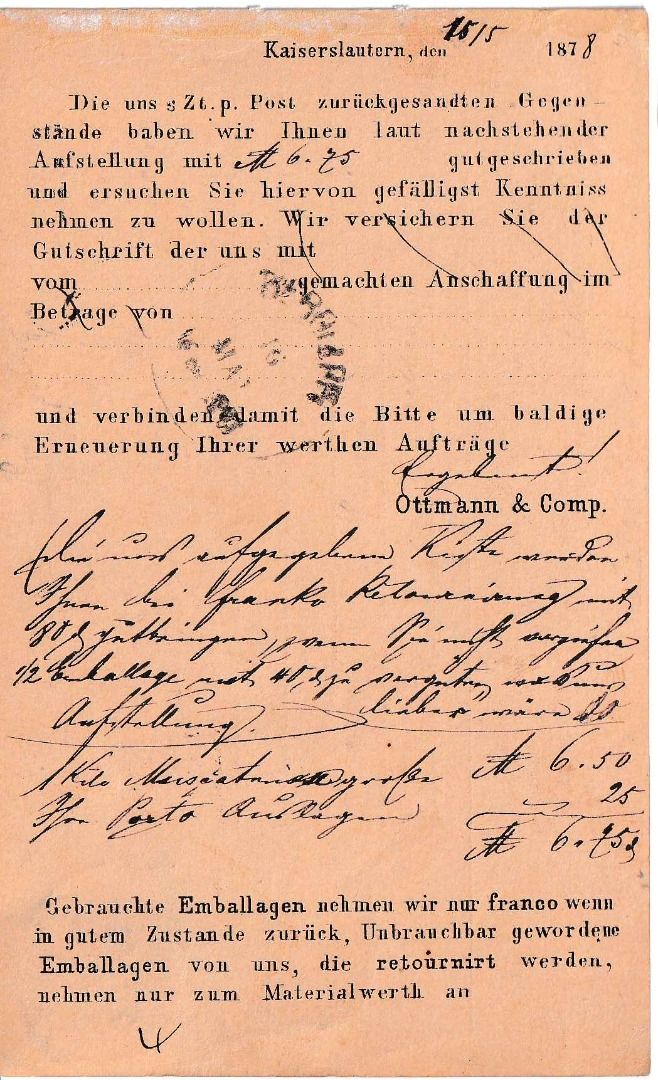 Kaiserslautern, den 15/5 1878
Die uns s Zt. p. Post zurückgesandten Gegen-
stände haben wir Ihnen laut nachstehender
Aufstellung mit ℳ 6.75 gutgeschrieben
und ersuchen Sie hiervon gefälligst Kenntniss
nehmen zu wollen. Wir versichern Sie der
Gutschrift der uns mit
vom gemachten Anschaffung im
Betrage von
MAI
und verbinden damit die Bitte um baldige
Erneuerung Ihrer werthen Aufträge
Ergebenst!
Ottmann & Comp.
Die uns aufgegebene Kiste werden
Ihnen bei franko Retournirung mit
80 ₰ gutbringen, wenn Sie nicht vorziehen
1/2 Emballage mit 40 ₰ zu vergüten, was uns
lieber wäre
Aufstellung.
1 Kilo Muscatnüsse große ℳ 6.50
Ihre Porto Auslagen 25
ℳ 6.75 ₰
Gebrauchte Emballagen nehmen wir nur franco wenn
in gutem Zustande zurück, Unbrauchbar gewordene
Emballagen von uns, die retournirt werden,
nehmen nur zum Materialwerth an